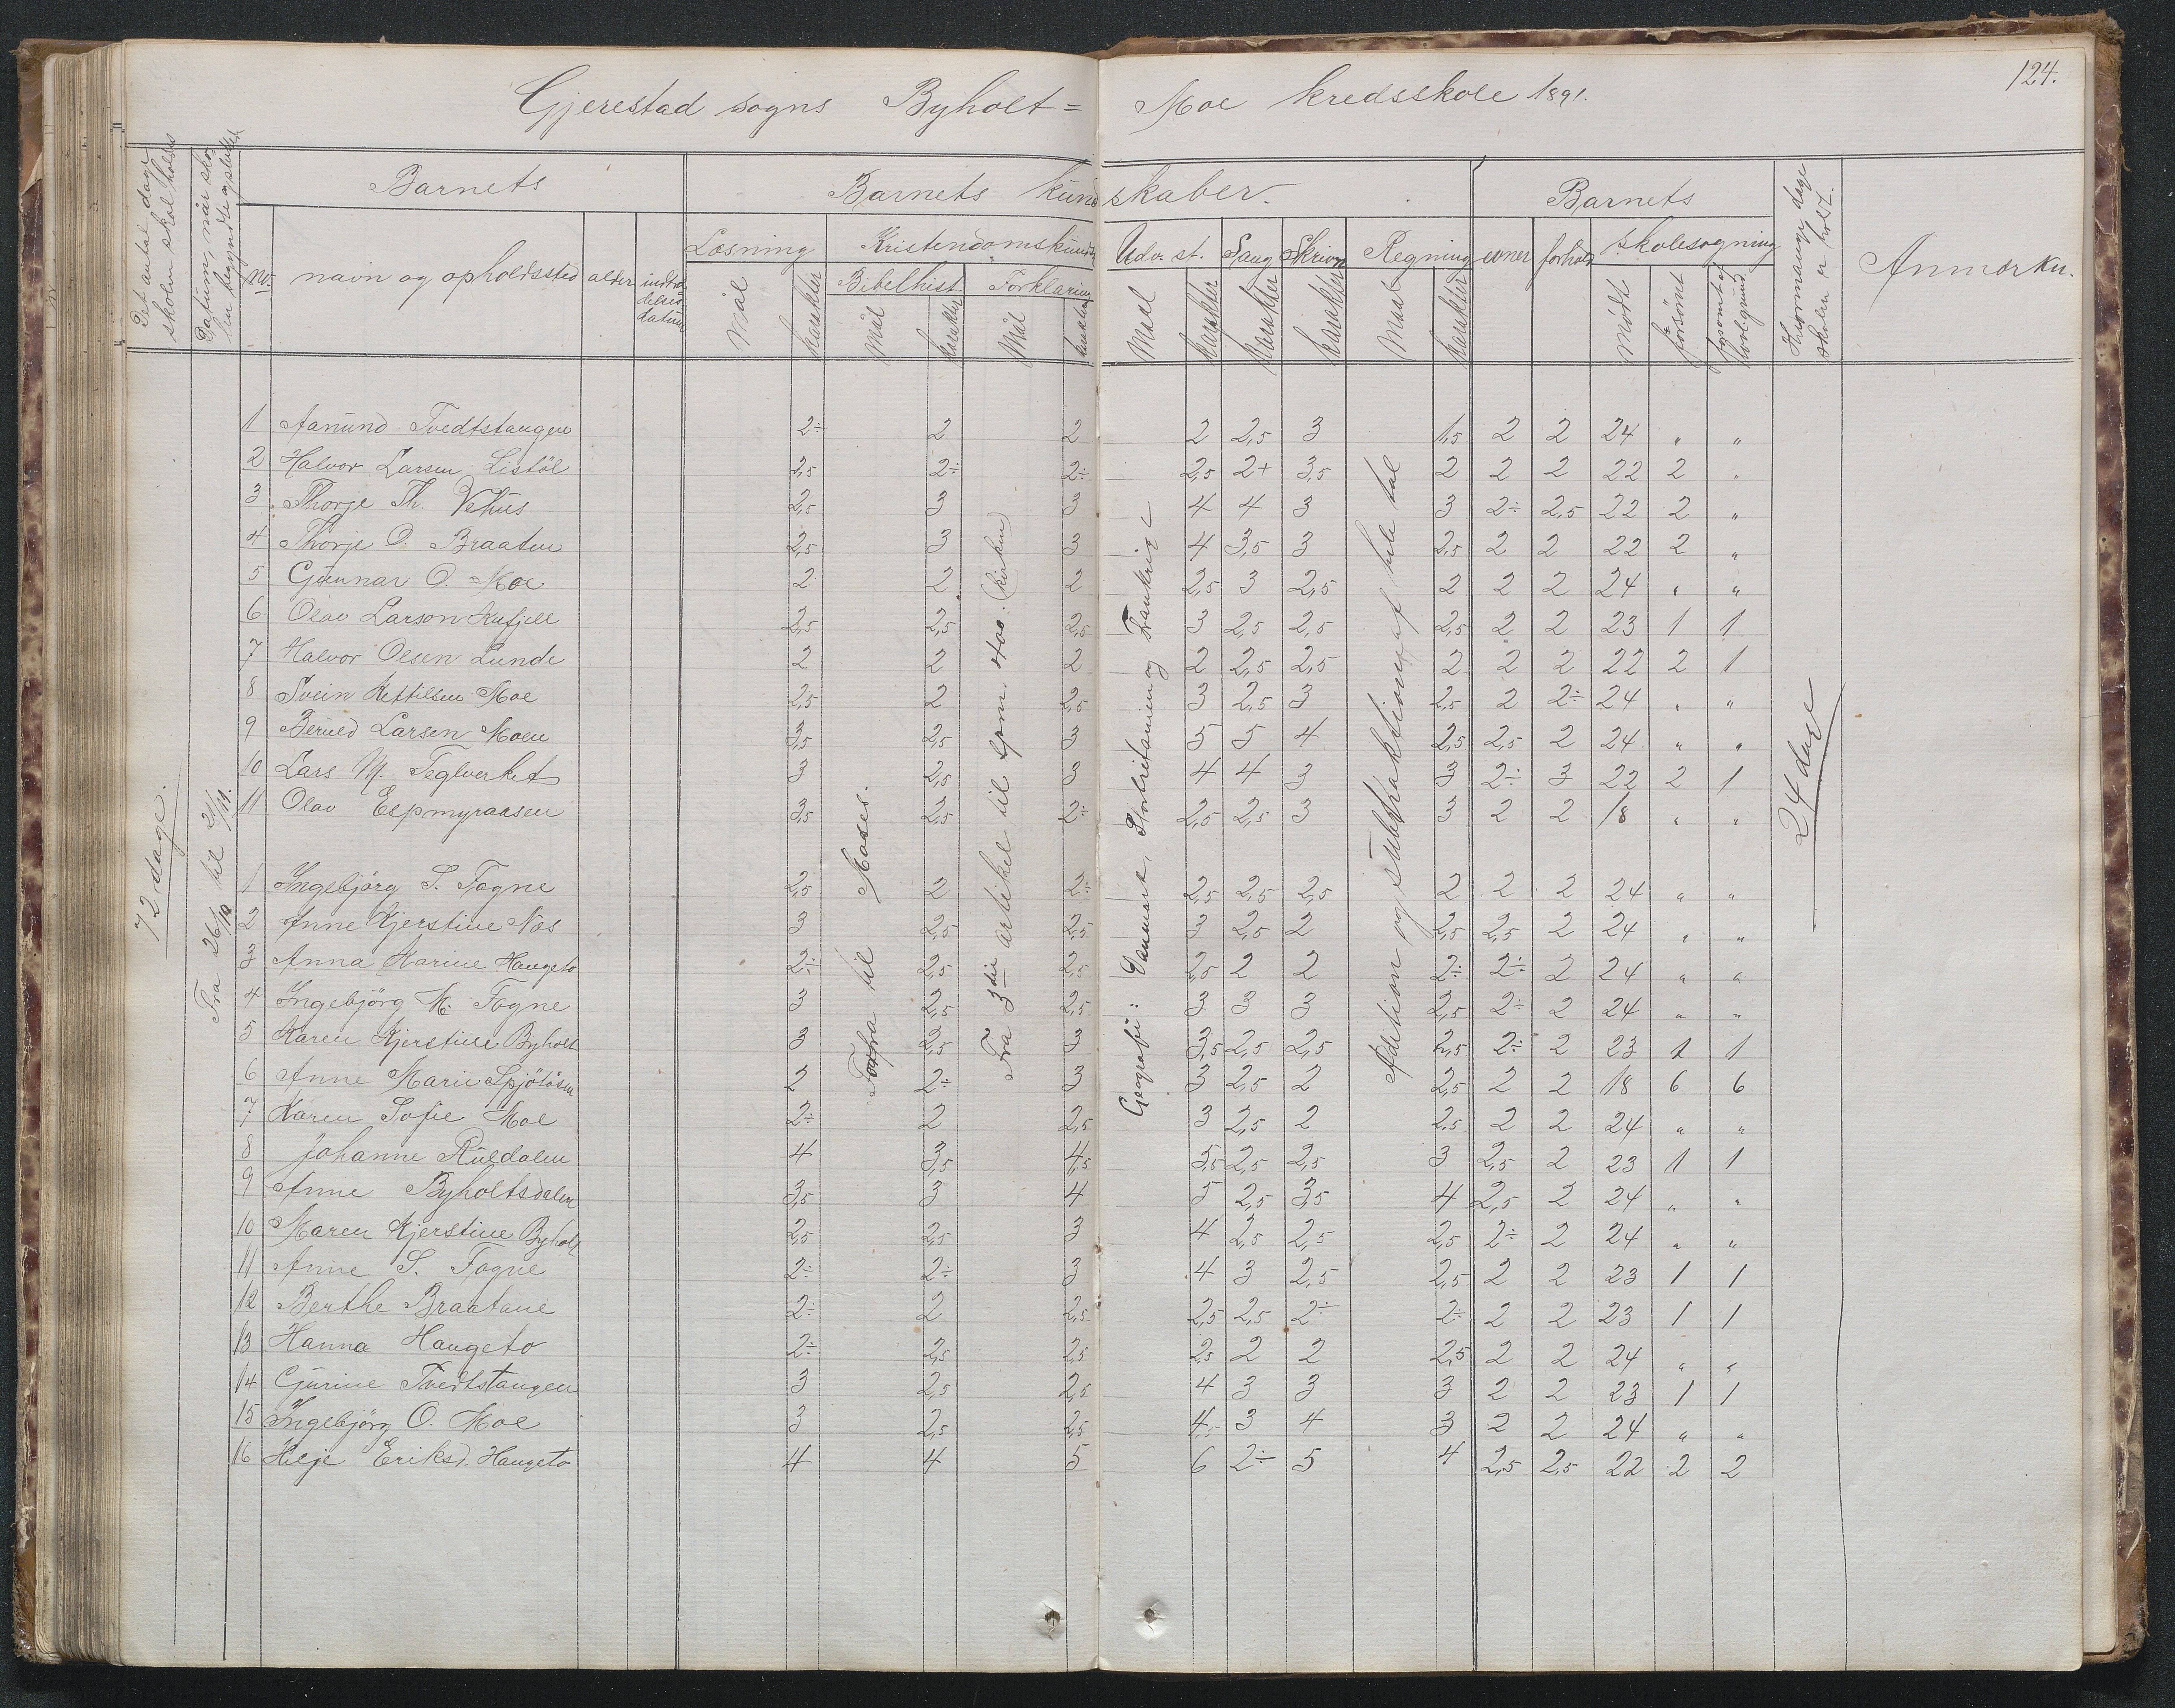 124.
Gjerestad sogns Byholt = Moe kredsskole 1891.
Det antal dage skolen skal holdes
Datum, når skolen begyndte og sluttede
Barnets
Barnets kundskaber.
Barnets
Hvormange dage skolen er holdt.
Anmærkn.
nr. navn og opholdssted alder indtrædelsesdatum
Læsning Kristendomskundsk. Udv. st. Sang Skrivn. Regning evner forhold skolesøgning
Bibelhist. Forklaring
Mål karakter Mål karakter Mål karakter Maal karakter karakter karakter Maal karakter mødt forsømt forsømt af lovl. grund
72 dage.
Fra 26/10 til 21/11.
Forfra til Moses.
Fra 3die artikel til spm. 400. (kirken)
Geografi: Danmark, Storbritanien og Frankrige
Adition og subtraktion af hele tal
24 dage
1 Aanund Tvedtstangen 2÷ 2 2 2 2,5 3 1,5 2 2 24 " "
2 Halvor Larsen Listöl 2,5 2÷ 2÷ 2,5 2+ 3,5 2 2 2 22 2 "
3 Thorje Th. Vehus 2,5 3 3 4 4 3 3 2÷ 2,5 22 2 "
4 Thorje O. Braaten 2,5 3 3 4 3,5 3 2,5 2 2 22 2 "
5 Gunnar O. Moe 2 2 2 2,5 3 2,5 2 2 2 24 " "
6 Olav Larson 2,5 2,5 2,5 3 2,5 2,5 2,5 2 2 23 1 1
7 Halvor Olsen Lunde 2 2 2 2 2,5 2,5 2 2 2 22 2 1
8 Svein Kettilsen Moe 2,5 2 2,5 3 2,5 3 2,5 2 2÷ 24 " "
9 Larsen Moen 3,5 2,5 3 5 5 4 2,5 2,5 2 24 " "
10 Lars M. Teglverket 3 2,5 3 4 4 3 3 2÷ 3 22 2 1
11 Olav Espmyraasen 3,5 2,5 2÷ 2,5 2,5 3 3 2 2 18 " "
1 Ingebjörg S. Fogne 2,5 2 2÷ 2,5 2,5 2,5 2 2 2 24 " "
2 Anne Kjerstine Næs 3 2,5 2,5 3 2,5 2 2,5 2,5 2 24 " "
3 Anna Karine Haugeto 2÷ 2,5 2,5 2,5 2 2 2÷ 2÷ 2 24 " "
4 Ingebjörg M. Fogne 3 2,5 2,5 3 3 3 2,5 2÷ 2 24 " "
5 Karen Kjerstine Byholt 3 2,5 3 3,5 2,5 2,5 2,5 2÷ 2 23 1 1
6 Anne Marie Spjötåsen 2 2÷ 3 3 2,5 2 2,5 2 2 18 6 6
7 Karen Sofie Moe 2÷ 2 2,5 3 2,5 2 2,5 2 2 24 " "
8 Johanne Ruldalen 4 3,5 4,5 5,5 2,5 2,5 3 2,5 2 23 1 1
9 Anne Byholtsdalen 3,5 3 4 5 2,5 3,5 4 2,5 2 24 " "
10 Maren Kjerstine Byholt 2,5 2,5 3 4 2,5 2,5 2,5 2÷ 2 24 " "
11 Anne S. Fogne 2÷ 2÷ 3 4 3 2,5 2,5 2 2 23 1 1
12 Berthe Braatane 2÷ 2 2,5 2,5 2,5 2÷ 2÷ 2 2 23 1 1
13 Hanna Haugeto 2÷ 2,5 2,5 2,5 2 2 2,5 2 2 24 " "
14 Gurine Tvedtstangen 3 2,5 2,5 4 3 3 3 2 2 23 1 1
15 Ingebjörg O. Moe 3 2,5 2,5 4,5 3 4 3 2 2 24 " "
16 Hilje Eriksd. Haugeto 4 4 5 6 2÷ 5 4 2,5 2,5 22 2 2